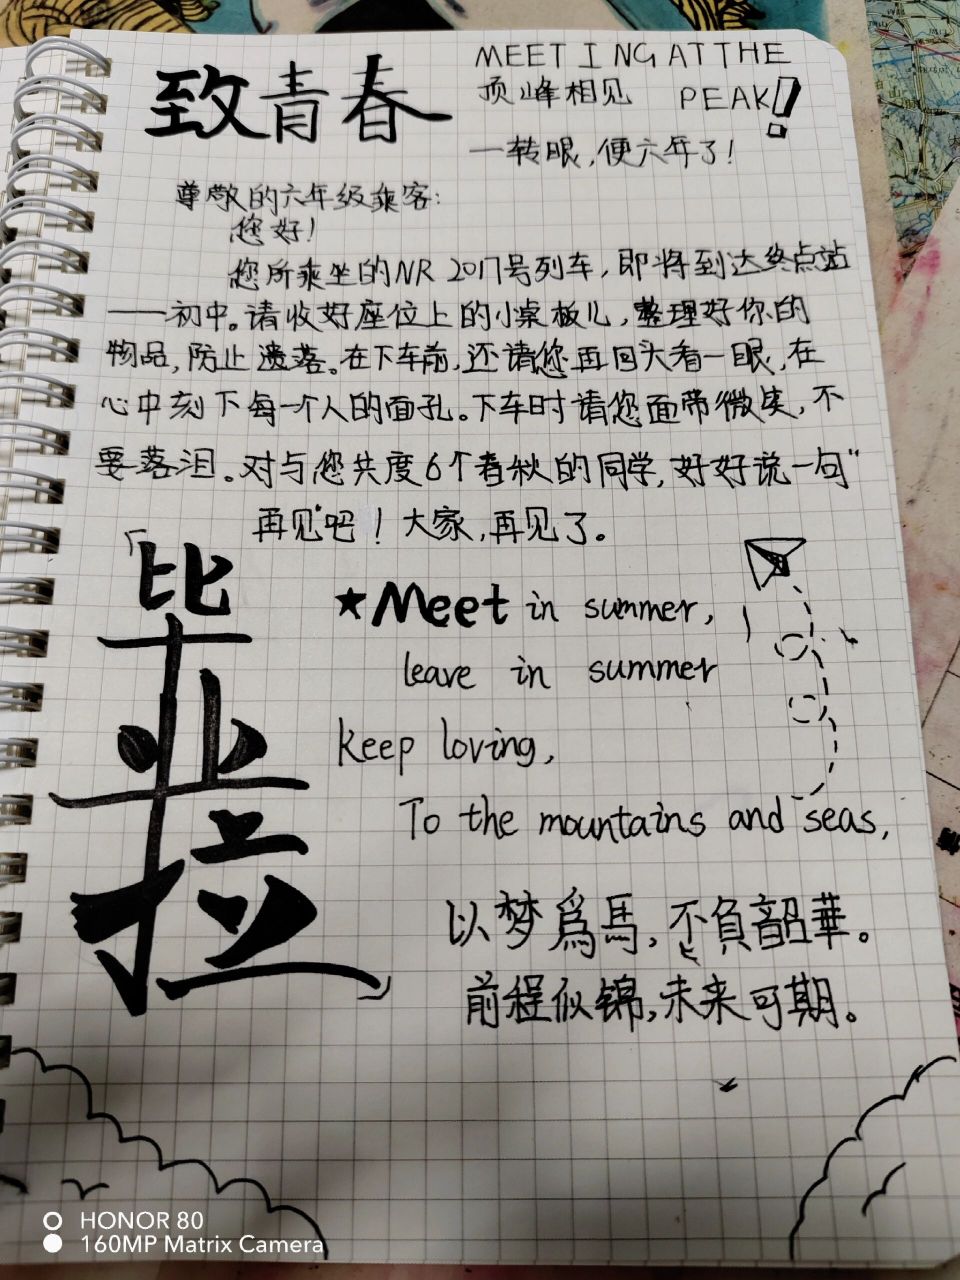 致青春
MEETINGATTHE
顶峰相见 PEAK!
一转眼,便六年了!
尊敬的六年级乘客:
您好!
您所乘坐的NR 2017号列车,即将到达终点站
——初中。请收好座位上的小桌板儿,整理好你的
物品,防止遗落。在下车前,还请您再回头看一眼,在
心中刻下每一个人的面孔。下车时请您面带微笑,不
要落泪。对与您共度6个春秋的同学,好好说一句“
再见”吧!大家,再见了。
「毕
业
拉」
★Meet in summer,
leave in summer
Keep loving,
To the mountains and seas,
以梦爲馬,不負韶華。
前程似锦,未来可期。
HONOR 80
160MP Matrix Camera